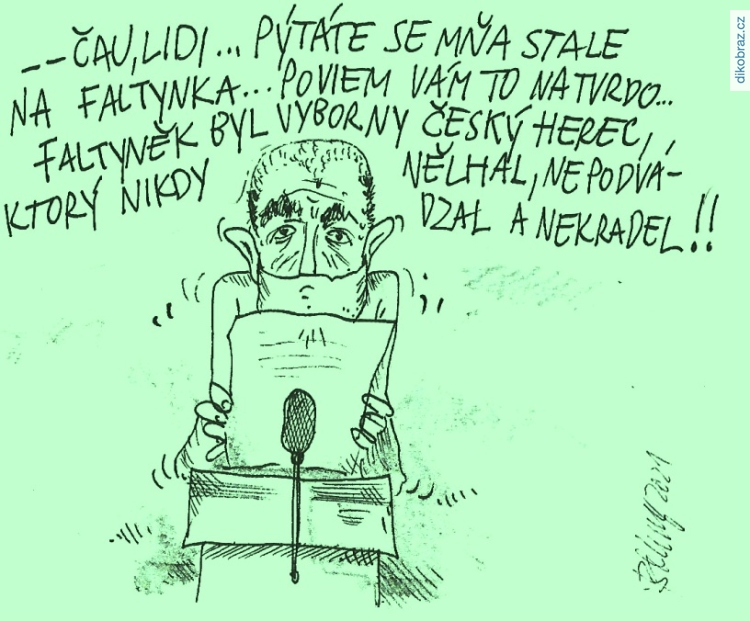 --ČAU, LIDI... PÝTÁTE SE MŇA STALE
NA FALTYNKA... POVIEM VÁM TO NATVRDO...
FALTYNĚK BYL VYBORNY ČESKÝ HEREC,
KTORÝ NIKDY NĚLHAL, NEPODVÁ-
DZAL A NEKRADEL!!
dikobraz.cz
2021